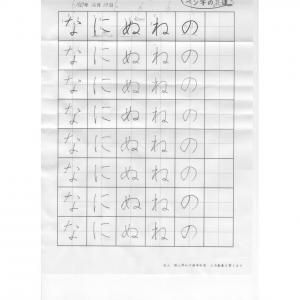 ペン字の
なにぬねの
なにぬねの
なにぬねの
なにぬねの
なにぬねの
なにぬねの
なにぬねの
なにぬねの